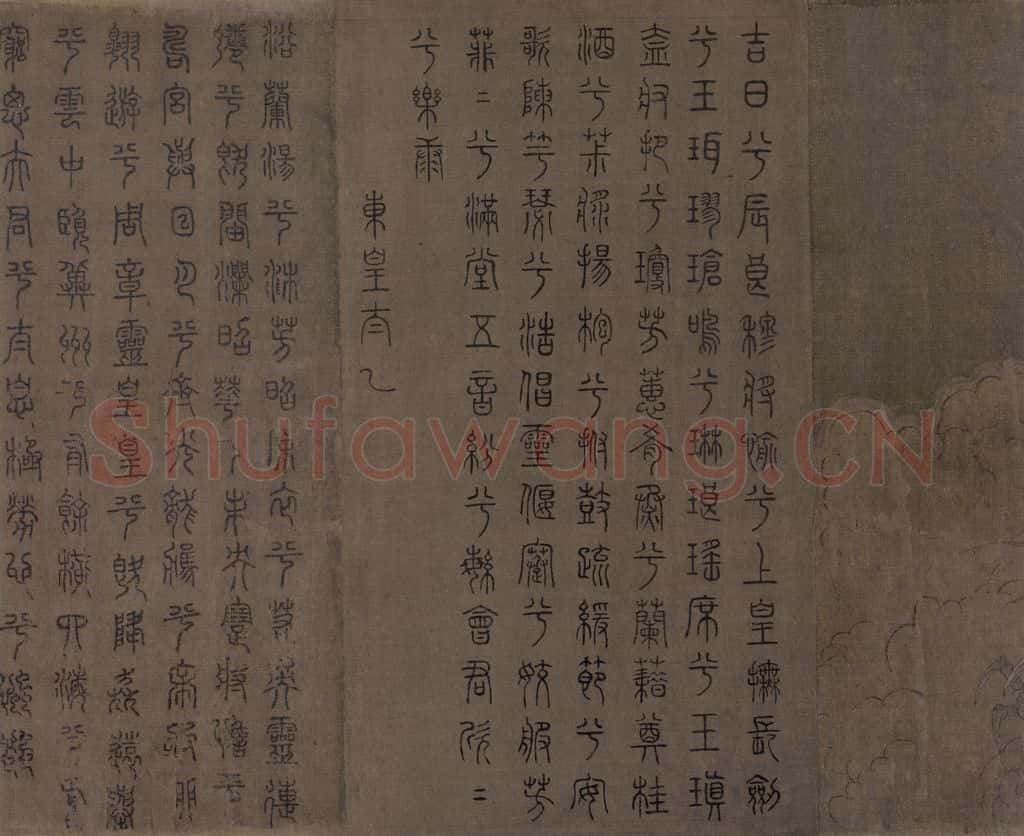 吉日兮辰良穆將愉兮上皇撫長劍
兮玉珥璆瑲鳴兮琳琅瑤席兮玉瑱
盍將把兮瓊芳蕙肴烝兮蘭藉奠桂
酒兮茮漿揚枹兮拊鼓疏緩節兮安
歌陳竽瑟兮浩倡靈偃蹇兮姣服芳
菲二兮滿堂五音紛兮繁會君欣二
兮樂康
東皇太乙
浴蘭湯兮沐芳采衣兮若英靈連
蜷兮既留爛昭兮未央蹇將憺兮
壽宮與日月兮齊光龍駕兮帝服
翱遊兮周章靈皇皇兮既降猋遠舉
兮雲中覽冀州兮有餘橫四海兮焉
窮思夫君兮太息極勞心兮
Shufawang.CN